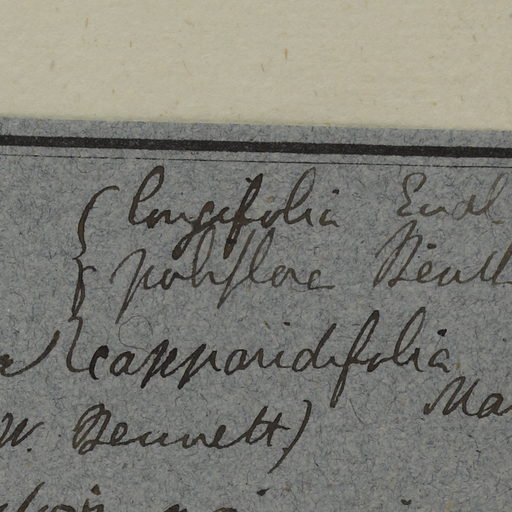 longifolia Endl
polyflora Benth
capparidifolia
Mar
W. Bennett)